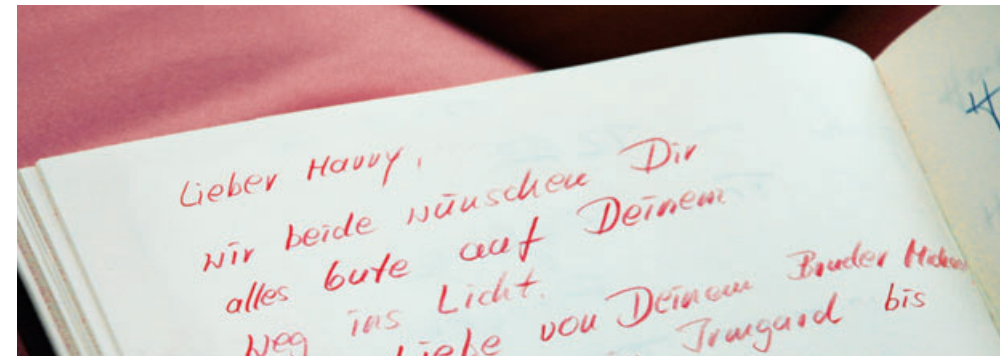 Lieber Hanny,
wir beide wünschen Dir
alles Gute auf Deinem
Weg ins Licht.
Liebe von Deinem Bruder
Irmgard bis